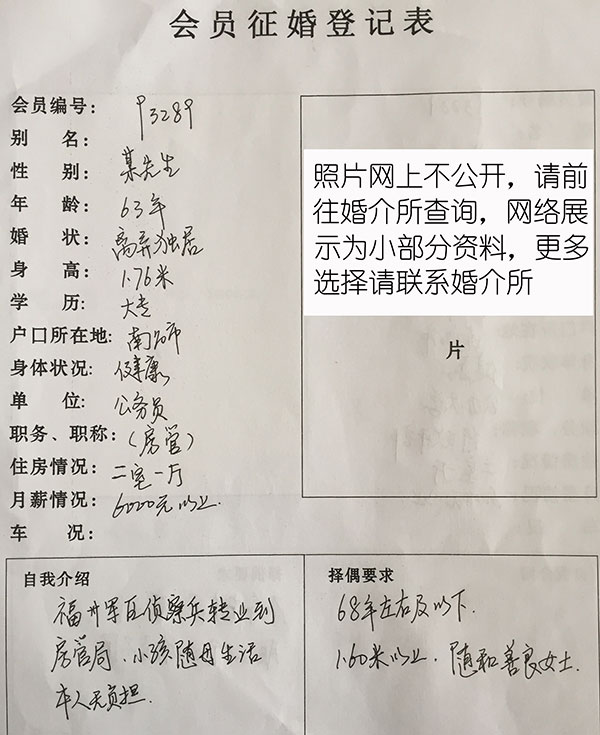 会员征婚登记表
会员编号: 93289
别 名:
性 别: 某先生
年 龄: 63年
婚 状: 离异独居
身 高: 1.76米
学 历: 大专
户口所在地: 南昌市
身体状况: 健康
单 位: 公务员
职务、职称: (房管)
住房情况: 二室一厅
月薪情况: 6000元以上.
车 况:
照片网上不公开，请前
往婚介所查询，网络展
示为小部分资料，更多
选择请联系婚介所
片
自我介绍
福州军区侦察兵转业到
房管局、小孩随母生活
本人无负担.
择偶要求
68年左右及以下.
1.60米以上. 随和善良女士.